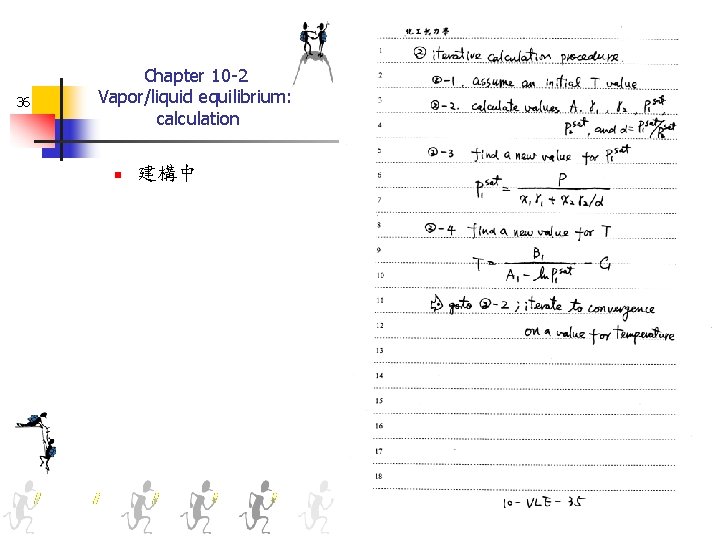 36
Chapter 10-2
Vapor/liquid equilibrium:
calculation
建構中
化工熱力學
1 ② iterative calculation procedure
2 ②-1. assume an initial T value
3 ②-2. calculate values A. γ1, γ2, P1^sat
4 P2^sat, and α=P1^sat/P2^sat
5 ②-3 find a new value for P1^sat
6 P1^sat = P / (x1γ1 + x2γ2/α)
7
8 ②-4 find a new value for T
9 T = B1 / (A1 - lnP1^sat) - C1
10
11 goto ②-2 ; iterate to convergence
12 on a value for temperature
13
14
15
16
17
18
10-VLE-35